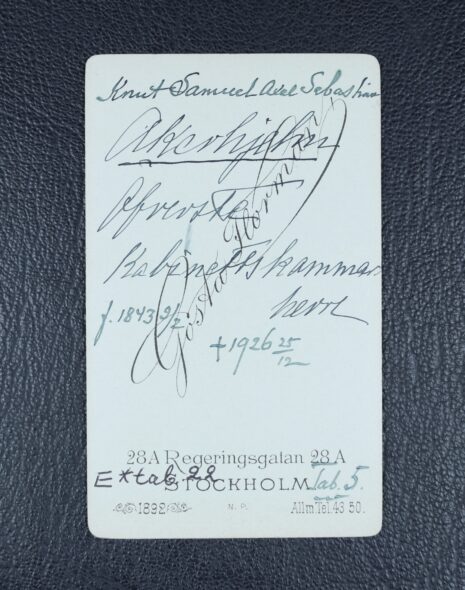 Knut Samuel Axel Sebastian
Akerhjelm
Öfverste
Kabinettskammar
herre
f. 1843 2/2
† 1926 25/12
Gösta Florman
28 A Regeringsgatan 28 A
Extab. 22
STOCKHOLM
Tab. 5.
1892
N. P.
Allm Tel. 43 50.